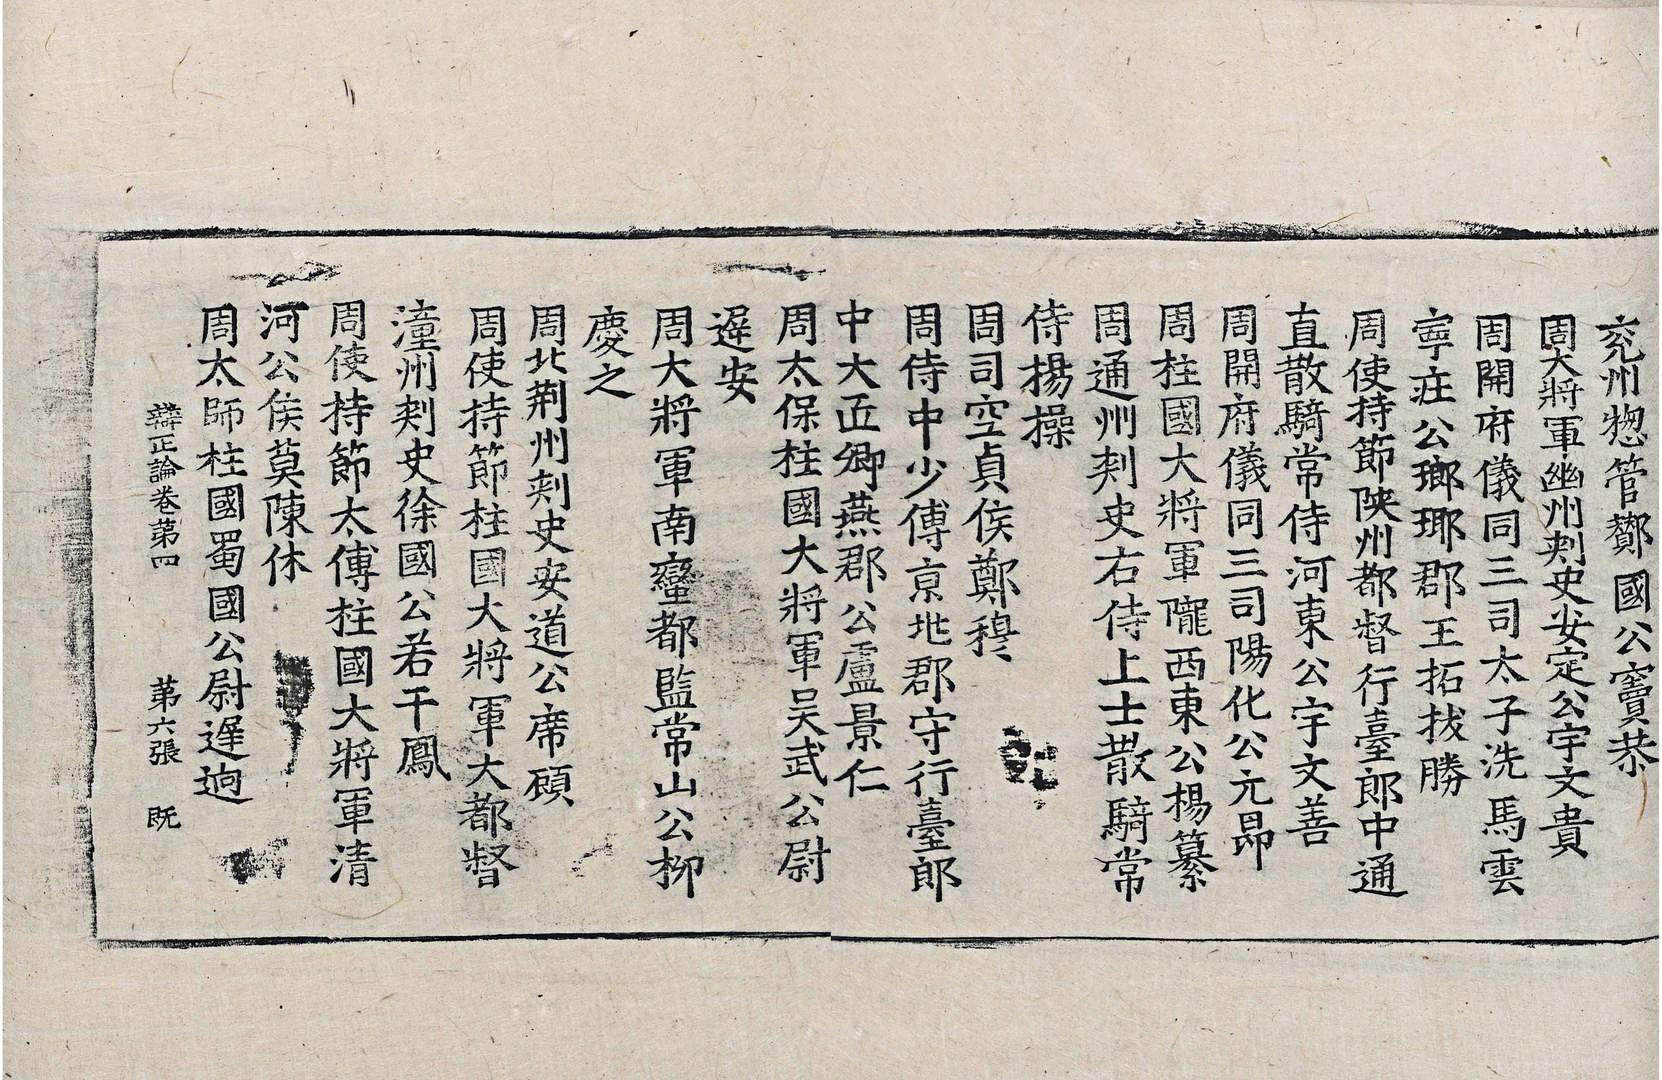 兖州惣管酇國公竇恭
周大將軍幽州刾史安定公宇文貴
周開府儀同三司太子洗馬雲
寧庄公瑯瑘郡王拓拔勝
周使持節陜州都督行臺郎中通
直散騎常侍河東公宇文善
周開府儀同三司陽化公元昴
周柱國大將軍隴西東公楊纂
周通州刾史右侍上士散騎常
侍揚操
周司空貞侯鄭穆
周侍中少傅京地郡守行臺郎
中大匠卿燕郡公盧景仁
周太保柱國大將軍吴武公尉
遲安
周大將軍南蠻都監常山公柳
慶之
周北荆州刾史安道公席顧
周使持節柱國大將軍大都督
潼州刾史徐國公若干鳳
周使持節太傅柱國大將軍清
河公侯莫陳休
周太師柱國蜀國公尉遲逈
辯正論卷苐四 苐六張 既